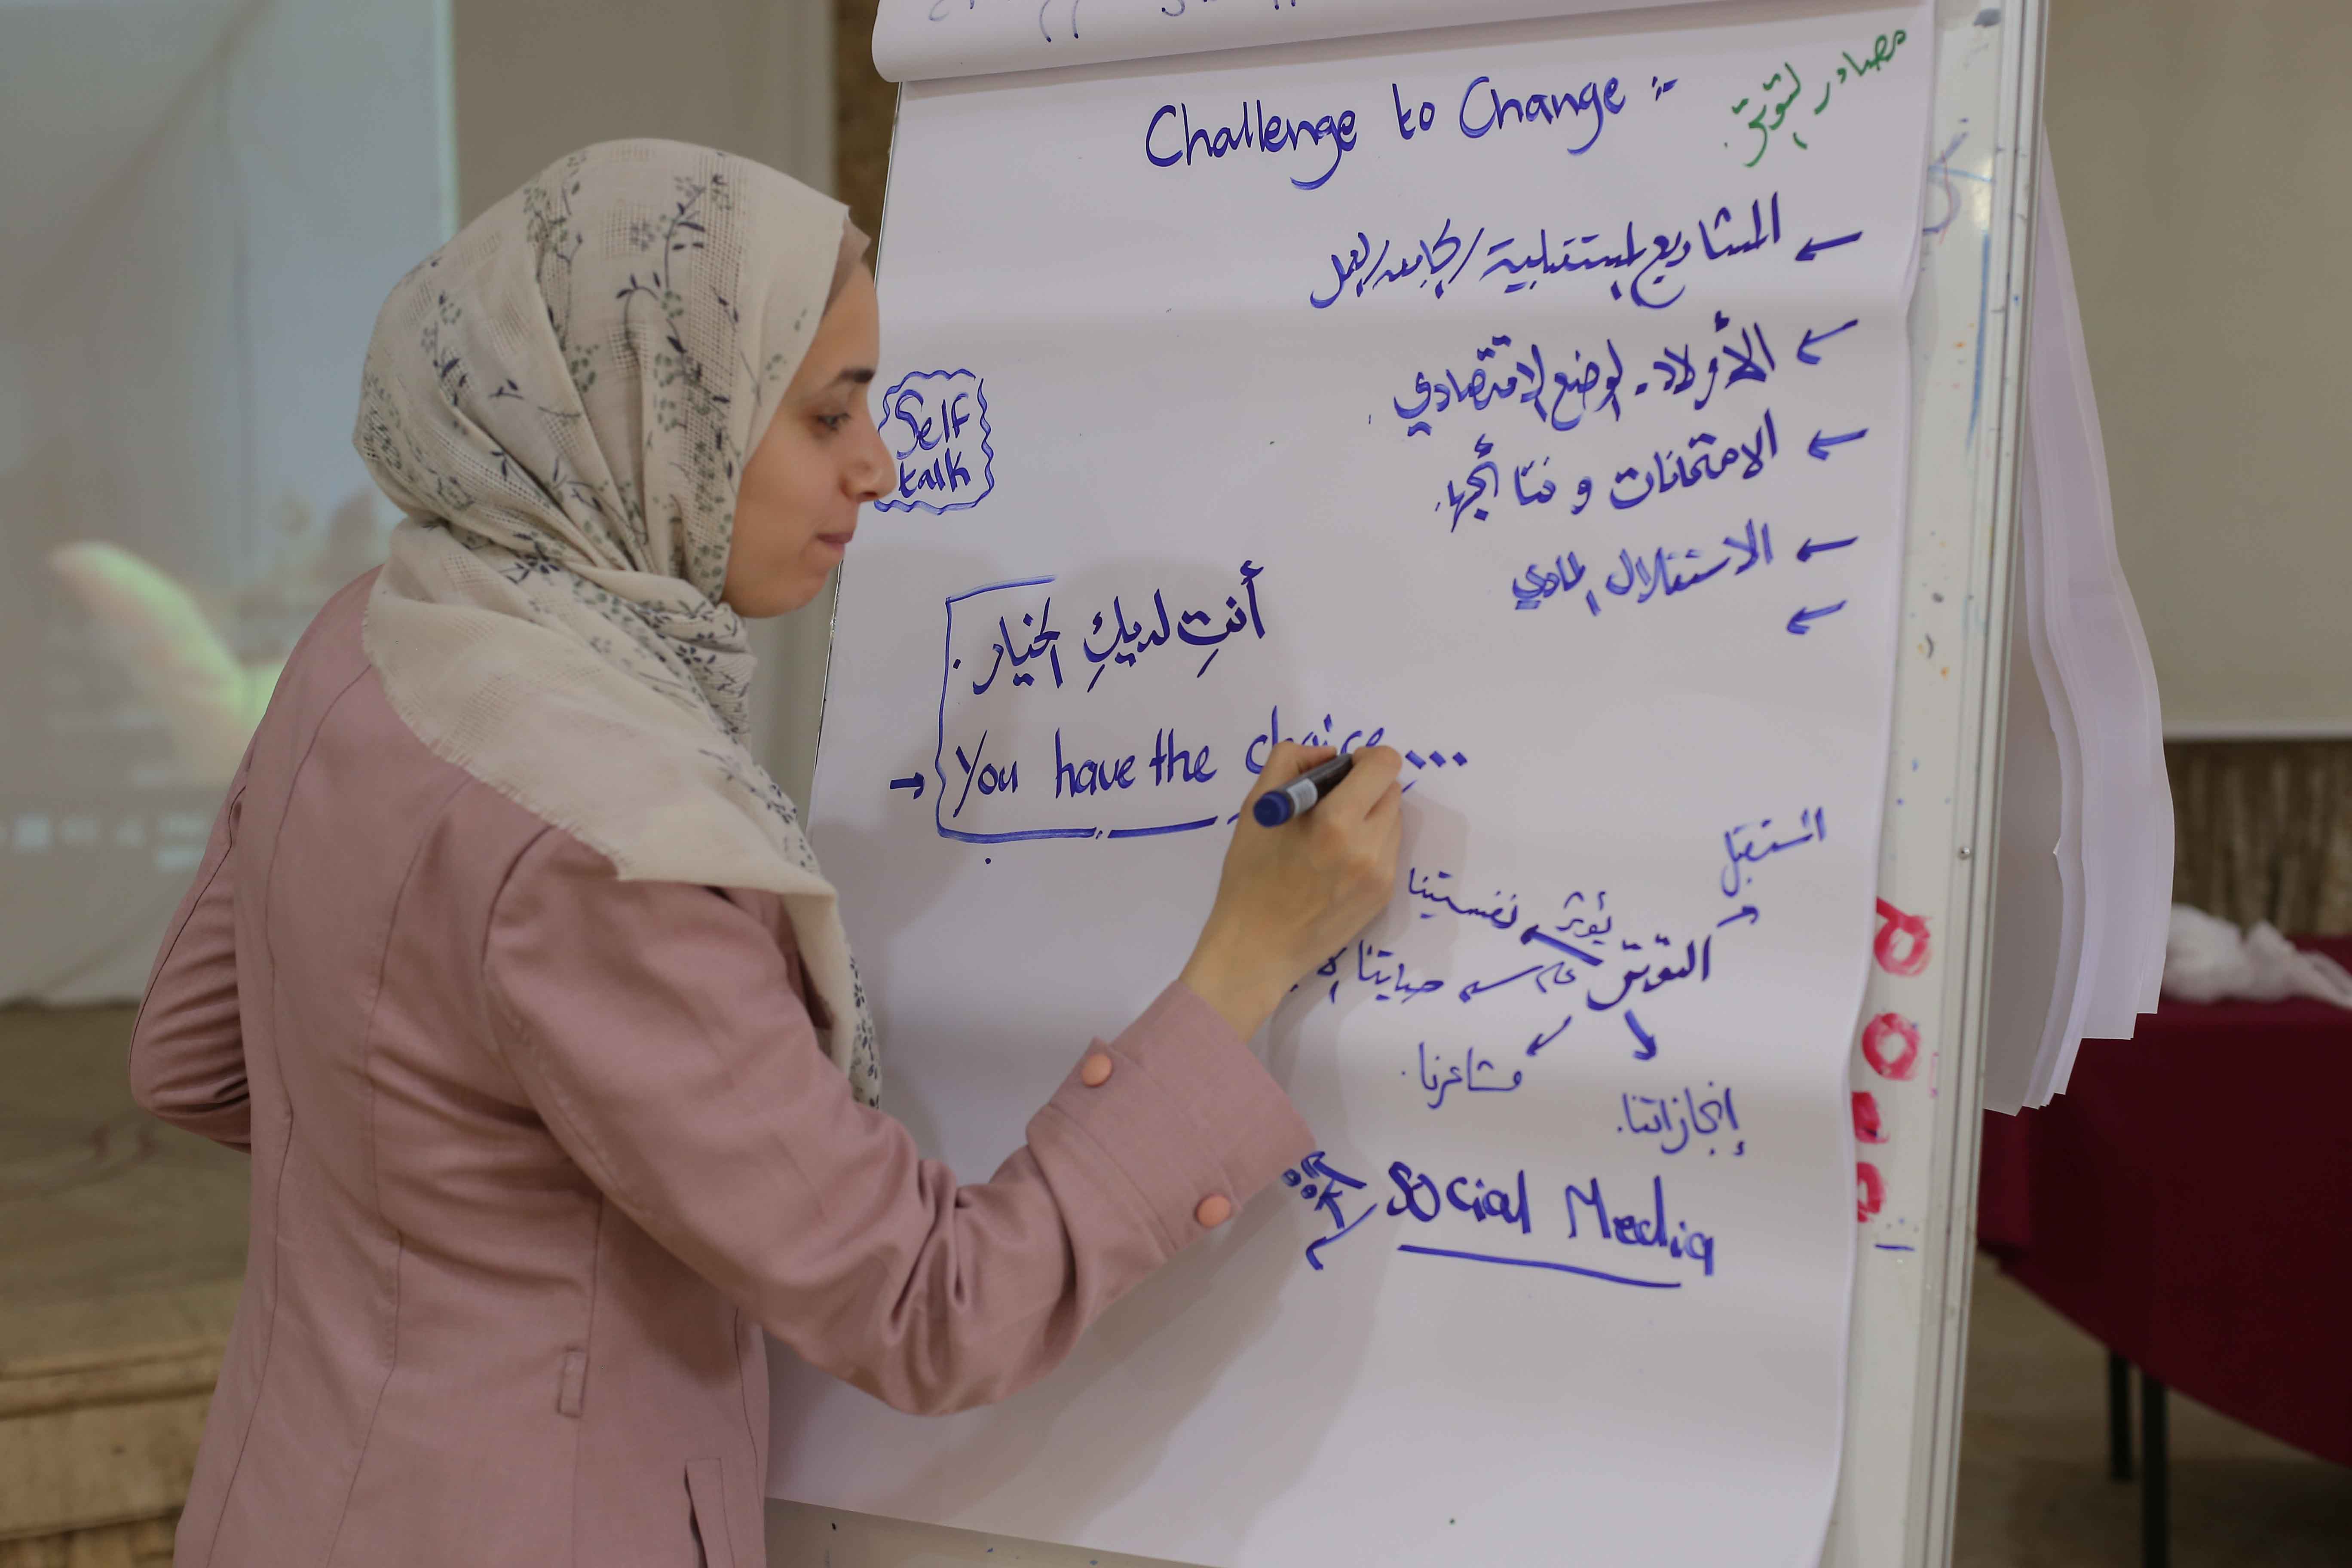 Challenge to Change :-
مصادر التوتر
← المشاريع المستقبلية / الجامعة / العمل
← الأولاد - الوضع الاقتصادي
← الامتحانات و نتائجها
← الاستقلال المادي
←
Self
talk
أنتِ لديكِ الخيار.
→ You have the choice ...
المستقبل
التوتر
يؤثر
على
نفسيتنا
حياتنا
مشاعرنا.
إنجازاتنا.
Social Media